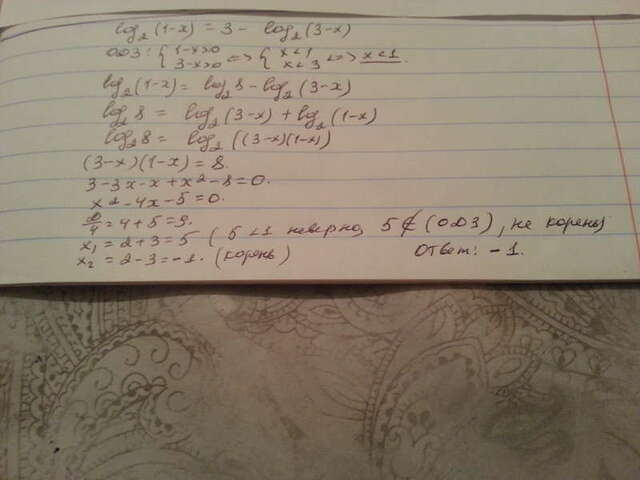 log₂(1-x) = 3 - log₂(3-x)
ОДЗ: { 1-x>0 3-x>0 <=> { x<1 x<3 <=> x<1.
log₂(1-x) = log₂8 - log₂(3-x)
log₂8 = log₂(3-x) + log₂(1-x)
log₂8 = log₂((3-x)(1-x))
(3-x)(1-x) = 8.
3-3x-x+x²-8=0.
x²-4x-5=0.
D/4 = 4+5=9.
x₁ = 2+3=5 ( 5<1 неверно, 5∉(ОДЗ), не корень)
x₂ = 2-3=-1. (корень) Ответ: -1.